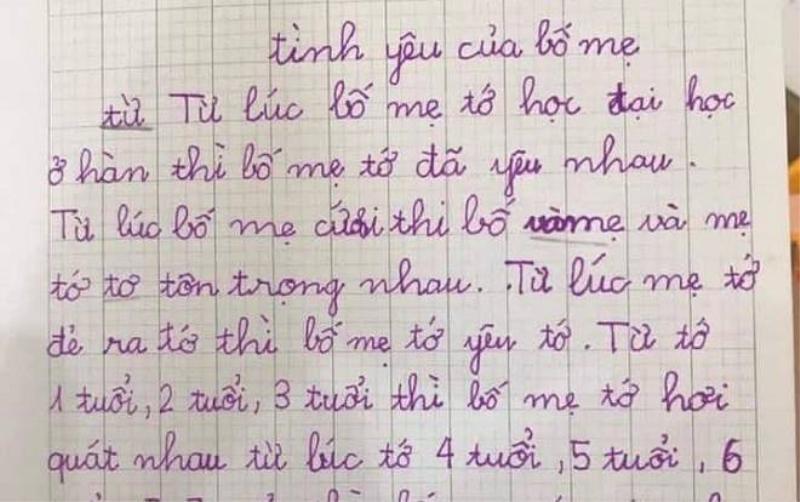 tình yêu của bố mẹ
từ Từ lúc bố mẹ tớ học đại học
ở hàn thì bố mẹ tớ đã yêu nhau.
Từ lúc bố mẹ cưới thì bố và mẹ
tớ tơ tôn trọng nhau. Từ lúc mẹ tớ
đẻ ra tớ thì bố mẹ tớ yêu tớ. Từ tớ
1 tuổi, 2 tuổi, 3 tuổi thì bố mẹ tớ hơi
quát nhau từ lúc tớ 4 tuổi, 5 tuổi, 6